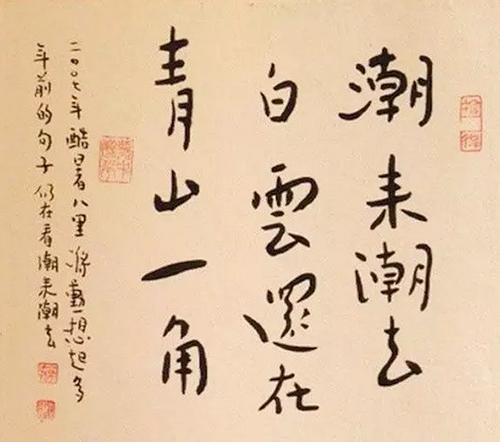 潮来潮去
白雲還在
青山一角
二〇〇七年酷暑八里 蔣勳想起多
年前的句子仍在看潮来潮去